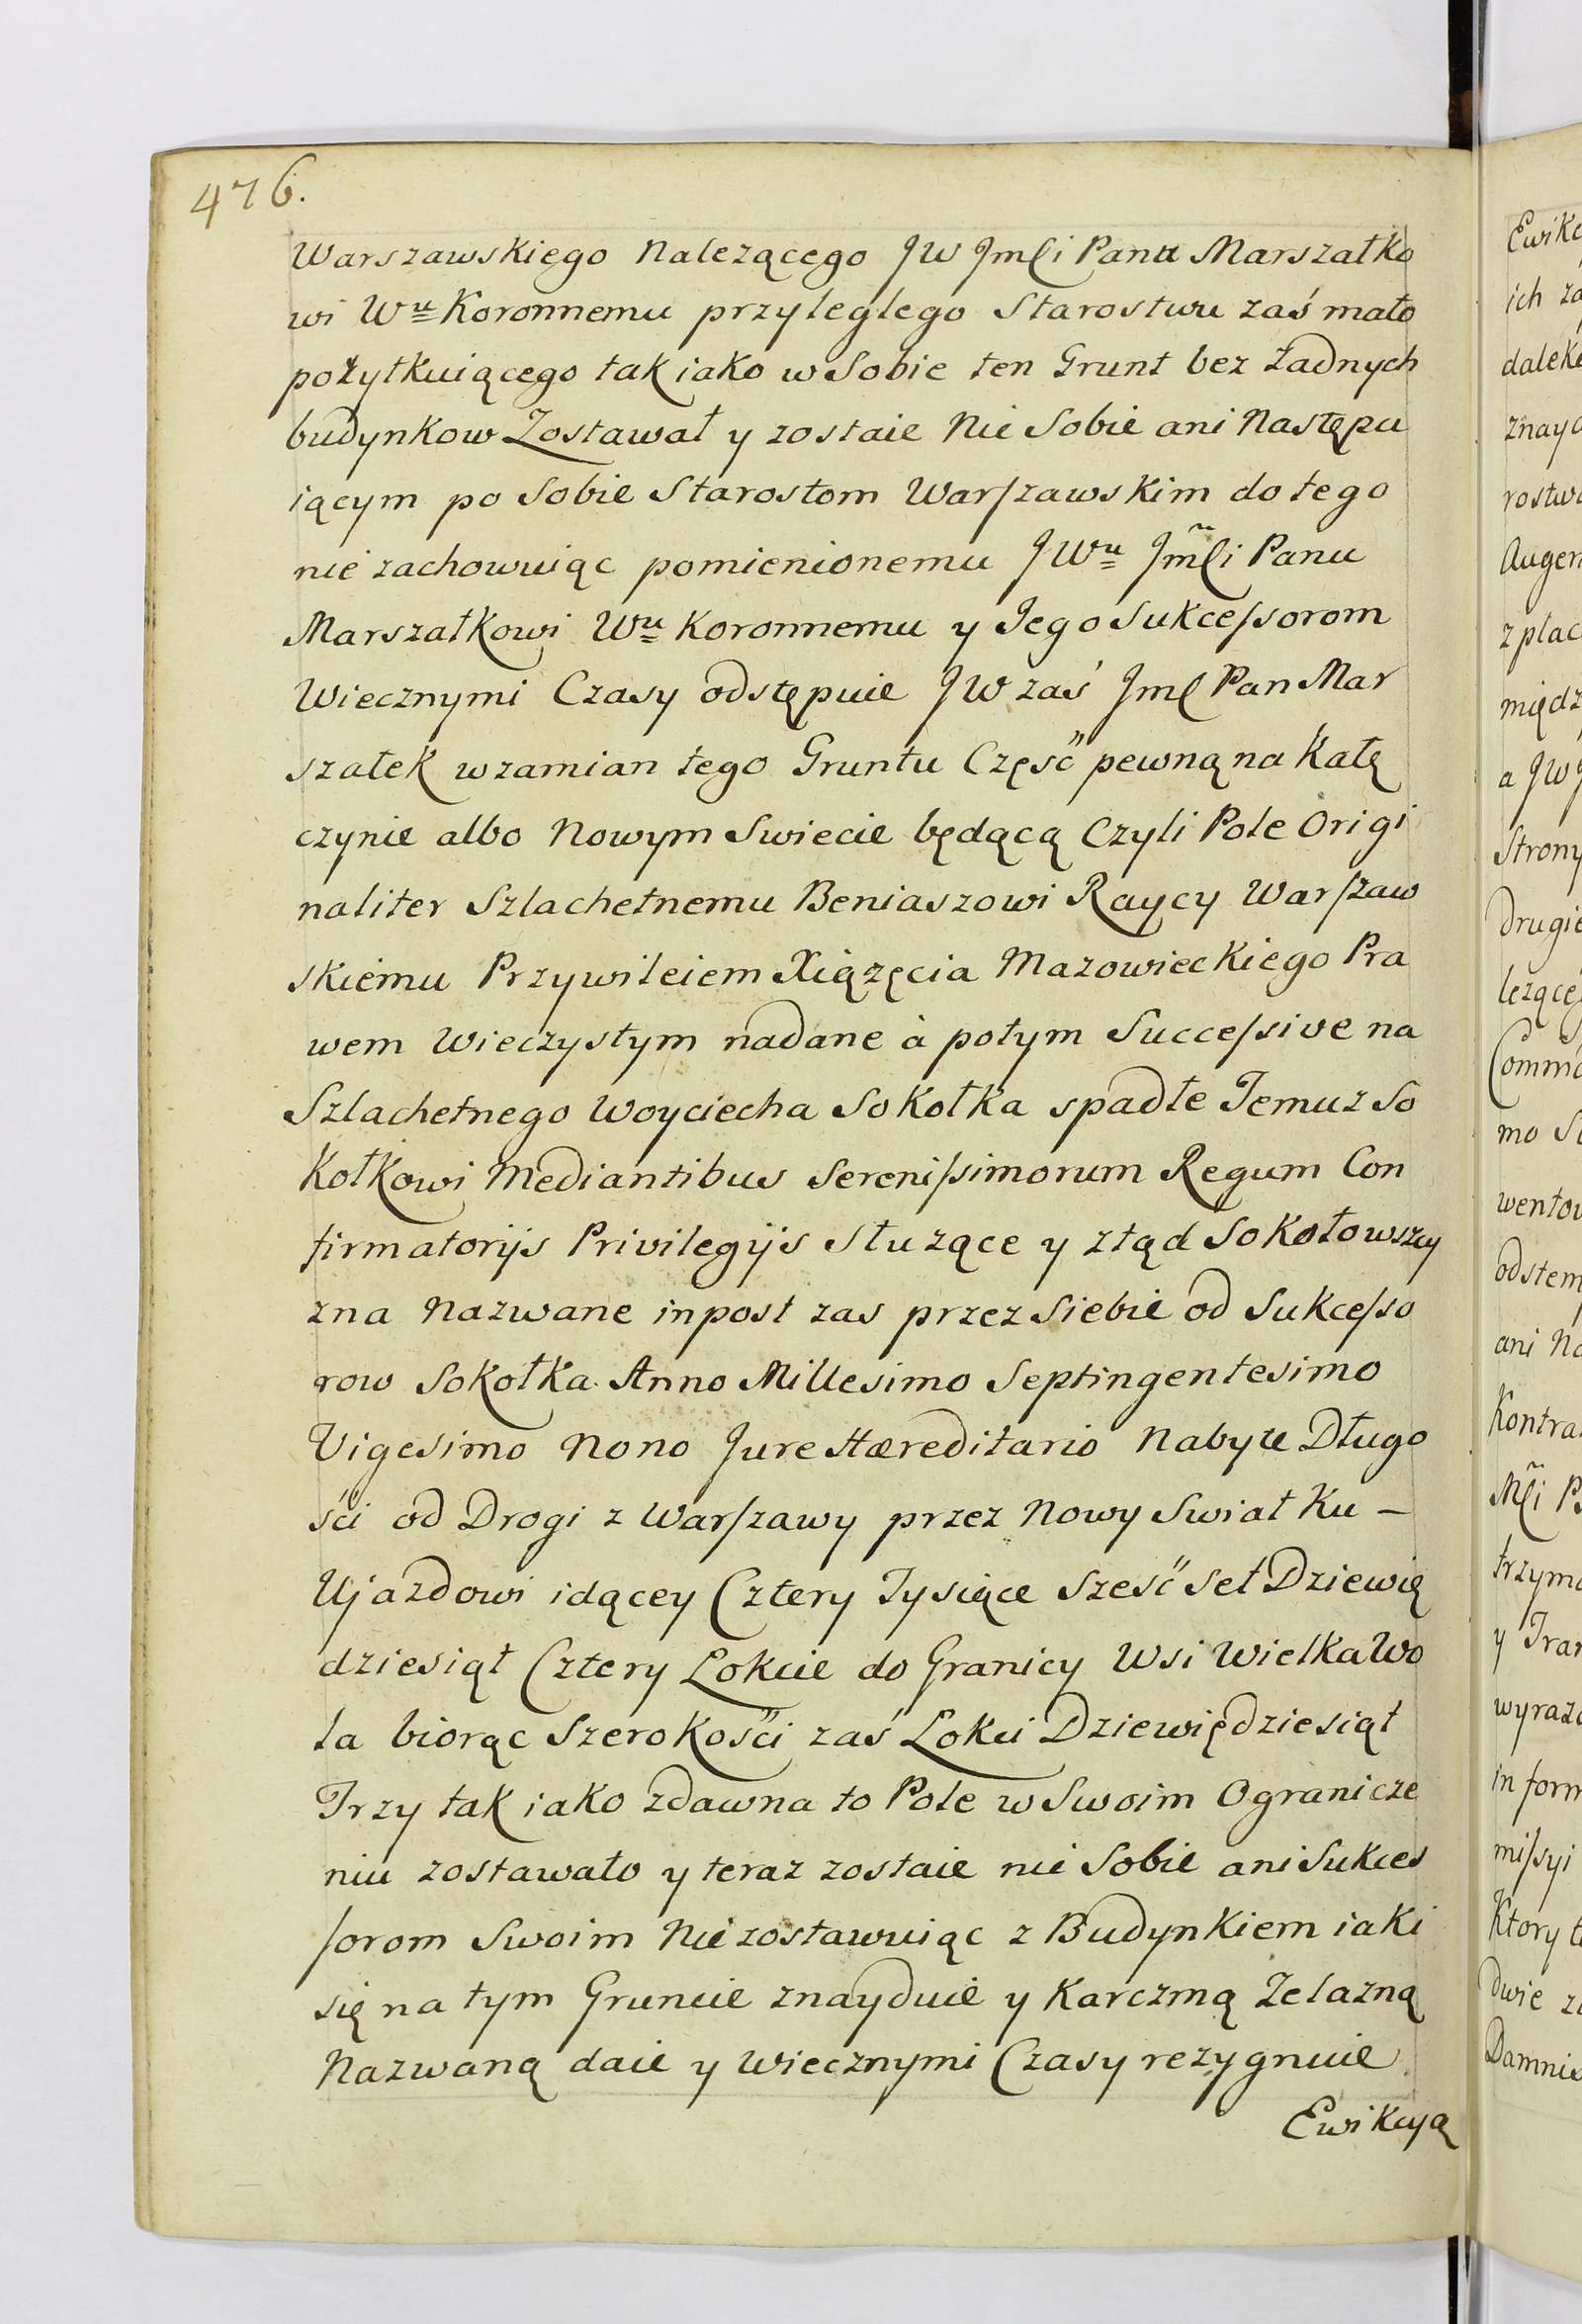 476.
Warszawskiego Nalezącego JW Jmści Panu Marszałko
wi Wu Koronnemu przyleglego Starostwu zaś mało
pożytkuiącego tak iako w Sobie ten Grunt bez żadnych
budynkow Zostawał y zostaie Nie Sobie ani Następu
iącym po Sobie Starostom Warszawskim do tego
nie zachowuiąc pomienionemu JWu Jmści Panu
Marszałkowi Wu Koronnemu y Jego Sukcessorom
Wiecznymi Czasy odstępuie JW zaś Jmć Pan Mar
szałek w zamian tego Gruntu Część pewną na Kałę
czynie albo Nowym Swiecie będącą Czyli Pole Origi
naliter Szlachetnemu Beniaszowi Raycy Warszaw
skiemu Przywileiem Xiązęcia Mazowieckiego Pra
wem Wieczystym nadane à potym Successive na
Szlachetnego Woyciecha Sokołka spadłe Temuz So
kołkowi Mediantibus Serenissimorum Regum Con
firmatorijs Privilegijs Słuzące y ztąd Sokołowszcy
zna Nazwane inpost zas przez Siebie od Sukcesso
row Sokołka Anno Millesimo Septingentesimo
Vigesimo Nono Jure Hæreditario Nabyte Długo
ści od Drogi z Warszawy przez Nowy Swiat Ku –
Ujazdowi idącey Cztery Tysiące Sześć Set Dziewię
dziesiąt Cztery Łokcie do Granicy Wsi Wielka Wo
la biorąc Szerokości zaś Łokci Dziewiędziesiąt
Trzy tak iako zdawna to Pole w Swoim Ogranicze
niu zostawało y teraz zostaie nie Sobie ani Sukces
sorom Swoim Nie zostawuiąc z Budynkiem iaki
się na tym Gruncie znayduie y Karczmą Żelazną
Nazwaną daie y Wiecznymi Czasy rezygnuie
Ewikcyą